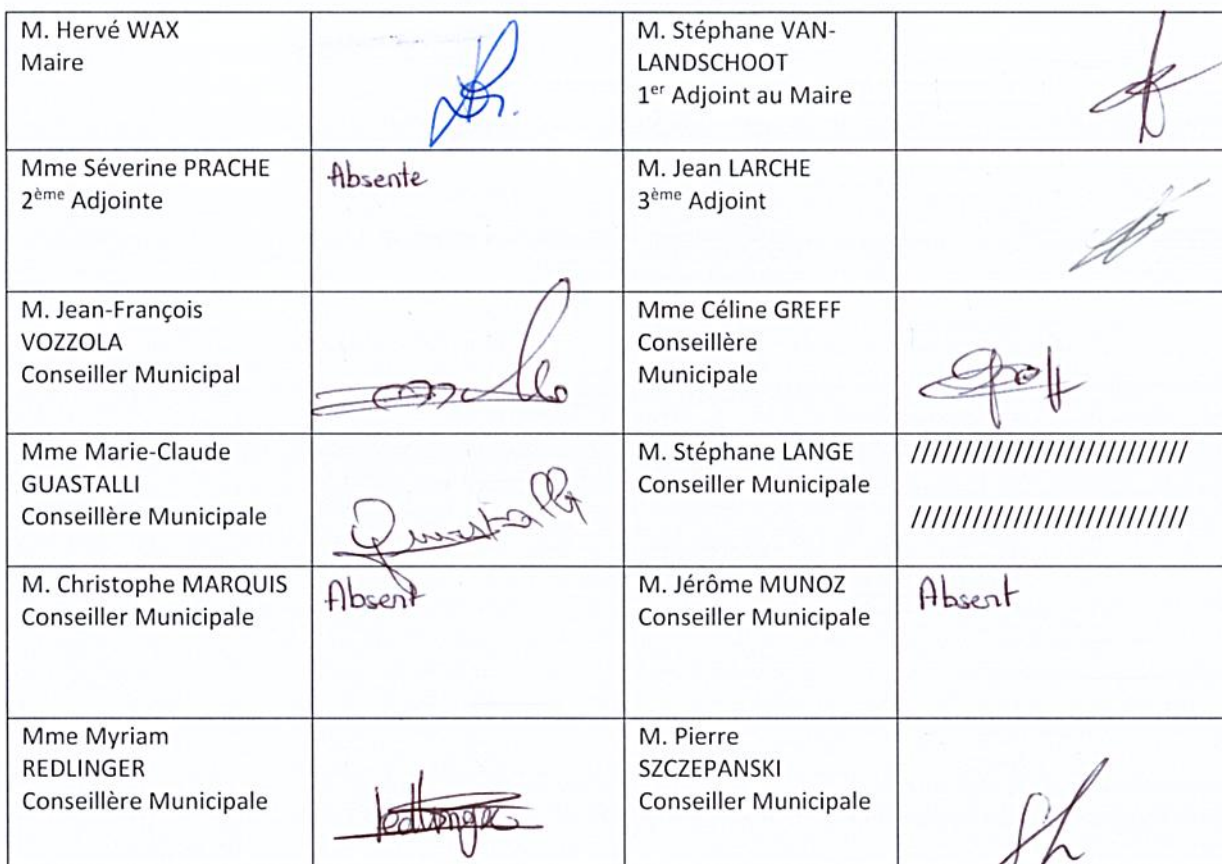 M. Hervé WAX
Maire
M. Stéphane VAN-
LANDSCHOOT
1er Adjoint au Maire
Mme Séverine PRACHE
2ème Adjointe
Absente
M. Jean LARCHE
3ème Adjoint
M. Jean-François
VOZZOLA
Conseiller Municipal
Mme Céline GREFF
Conseillère
Municipale
Mme Marie-Claude
GUASTALLI
Conseillère Municipale
Guastalli
M. Stéphane LANGE
Conseiller Municipale
///////////////////////////
///////////////////////////
M. Christophe MARQUIS
Conseiller Municipale
Absent
M. Jérôme MUNOZ
Conseiller Municipale
Absent
Mme Myriam
REDLINGER
Conseillère Municipale
M. Pierre
SZCZEPANSKI
Conseiller Municipale